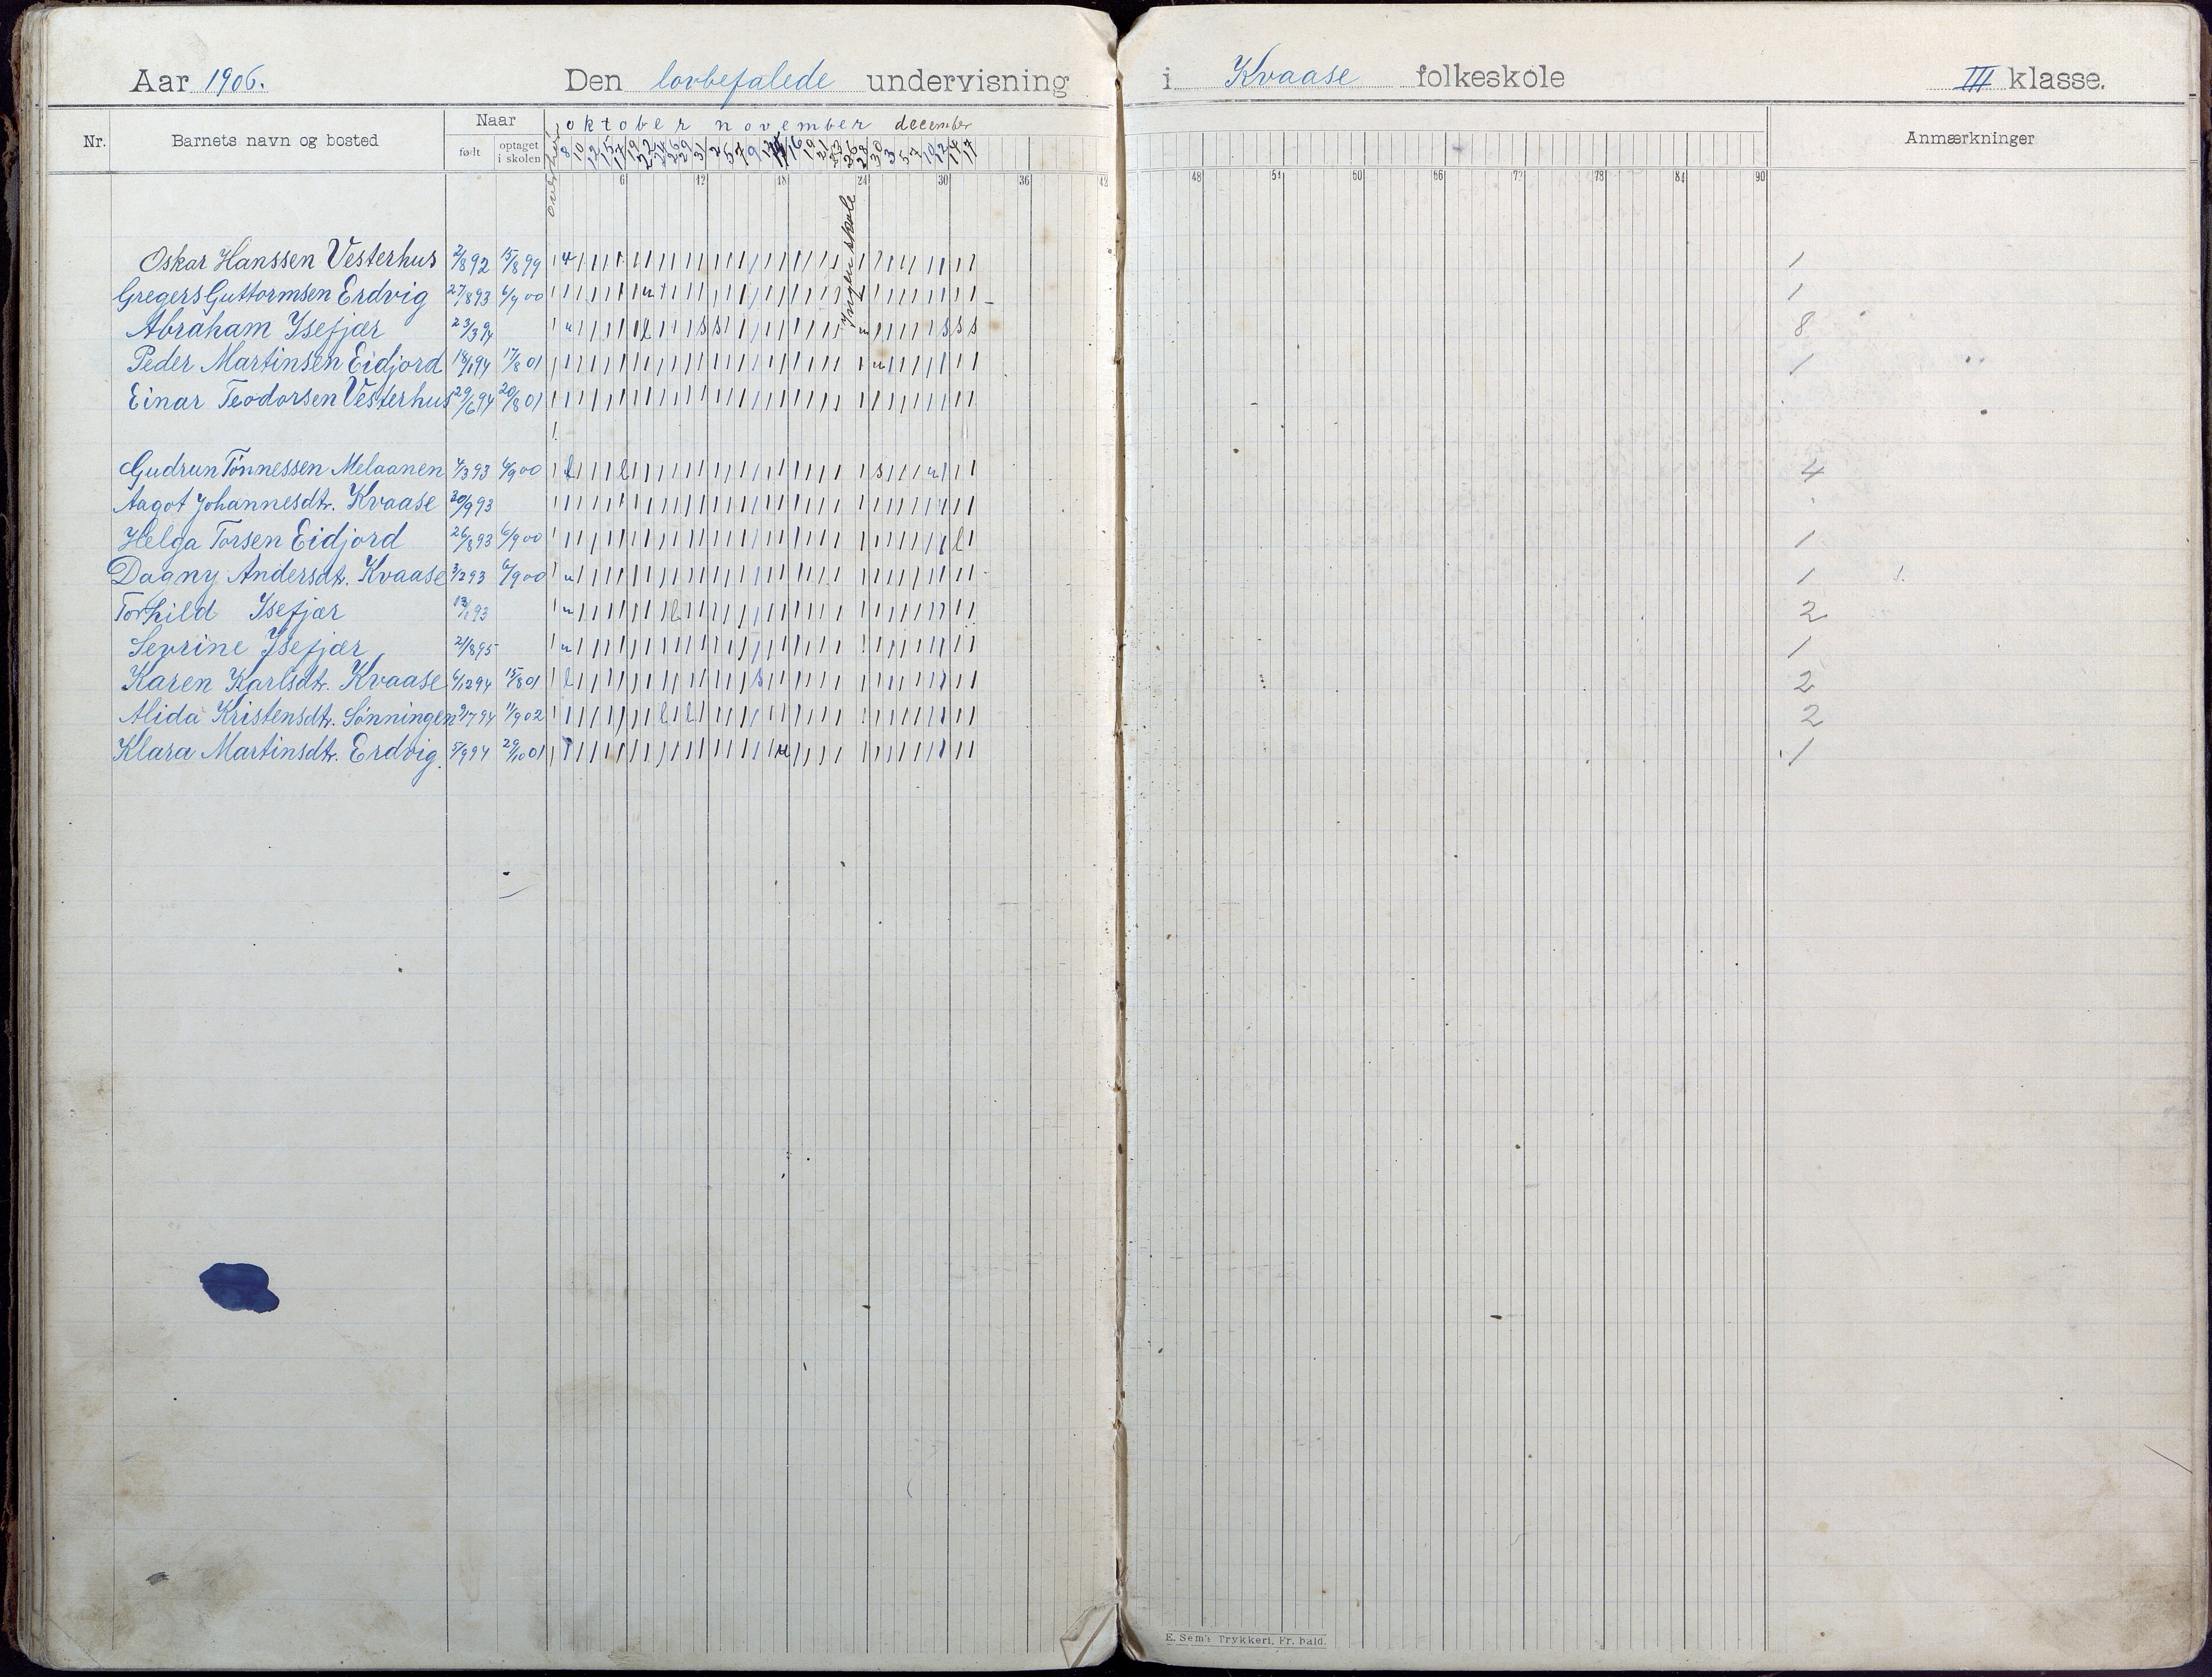 Aar 1906. Den lovbefalede undervisning i Kvaase folkeskole III klasse.
Nr. Barnets navn og bosted Naar født optaget i skolen oktober november december Anmærkninger
8 10 12 15 17 19 22 24 26 29 31 2 5 7 9 12 14 16 19 21 23 26 28 30 3 5 7 10 12 14 17
6 12 18 24 30 36 42 48 54 60 66 72 78 84 90
Ingen skole
Oskar Hanssen Vesterhus 2/8 92 15/8 99 1
Gregers Guttormsen Erdvig 27/8 93 6/9 00 1
Abraham Ysefjær 23/3 94 8
Peder Martinsen Eidjord 18/1 94 17/8 01 1
Einar Teodorsen Vesterhus 29/6 94 20/8 01
Gudrun Tønnessen Melaanen 4/3 93 6/9 00 4
Aagot Johannesdtr. Kvaase 20/9 93
Helga Torsen Eidjord 26/8 93 6/9 00 1
Dagny Andersdtr. Kvaase 3/2 93 6/9 00 1
Torhild Ysefjær 13/1 93 2
Sevrine Ysefjær 21/8 95 1
Karen Karlsdtr. Kvaase 6/12 94 15/8 01 2
Alida Kristensdtr. Sønningen 9/7 94 11/9 02 2
Klara Martinsdtr. Erdvig. 5/9 94 29/10 01 1
E. Sem's Trykkeri, Fr. hald.